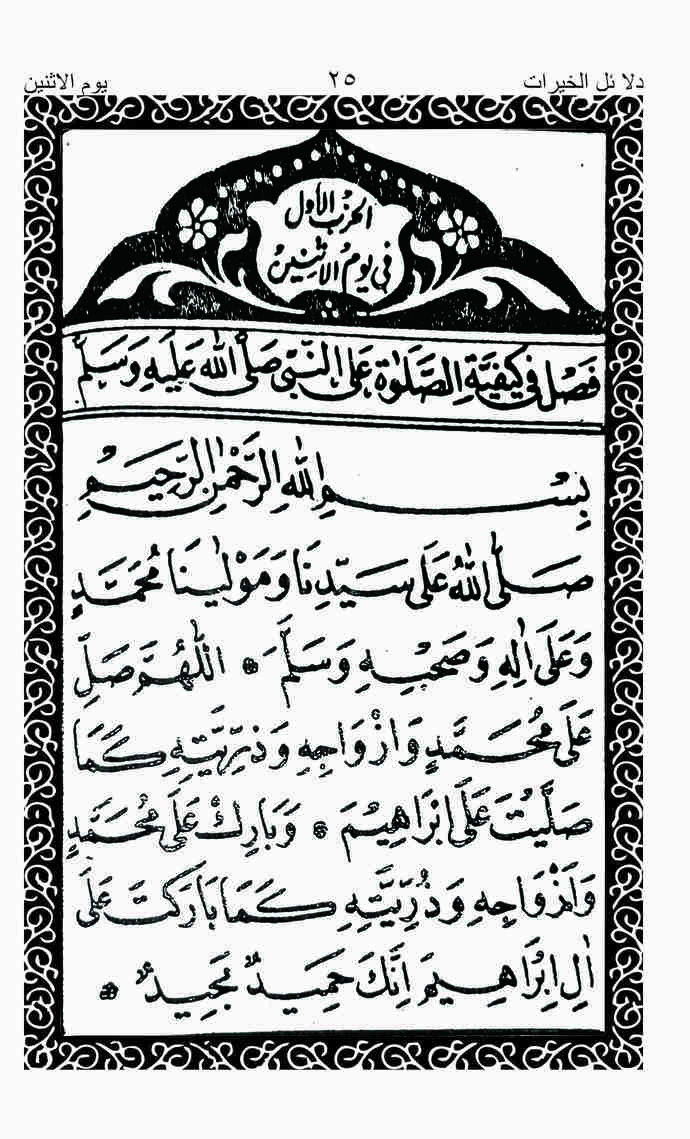 دلائل الخيرات ٢٥ يوم الاثنين
الحزب الأول
في يوم الاثنين
فَصْل في كَيْفِيَّةِ الصَّلٰوةِ عَلَى النَّبِيّ صَلَّى اللّٰه عَلَيْهِ وَسَلَّمَ
بِسْمِ اللّٰهِ الرَّحْمٰنِ الرَّحِيْمِ
صَلَّى اللّٰهُ عَلٰى سَيِّدِنَا وَمَوْلٰينَا مُحَمَّدٍ
وَعَلٰى اٰلِهٖ وَصَحْبِهٖ وَسَلَّمَ ۞ اَللّٰهُمَّ صَلِّ
عَلٰى مُحَمَّدٍ وَاَزْوَاجِهٖ وَذُرِّيَّتِهٖ كَمَا
صَلَّيْتَ عَلٰى اِبْرَاهِيْمَ ۞ وَبَارِكْ عَلٰى مُحَمَّدٍ
وَاَزْوَاجِهٖ وَذُرِّيَّتِهٖ كَمَا بَارَكْتَ عَلٰى
اٰلِ اِبْرَاهِيْمَ اِنَّكَ حَمِيْدٌ مَّجِيْدٌ ۞